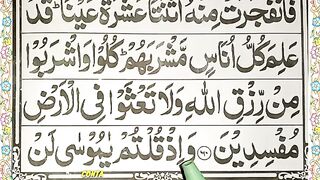 فَانْفَجَرَتْ مِنْهُ اثْنَتَا عَشْرَةَ عَيْنًا ؕ قَدْ
عَلِمَ كُلُّ اُنَاسٍ مَّشْرَبَهُمْ ؕ كُلُوْا وَاشْرَبُوْا
مِنْ رِّزْقِ اللّٰهِ وَلَا تَعْثَوْا فِی الْاَرْضِ
مُفْسِدِيْنَ ﴿۶۰﴾ وَاِذْ قُلْتُمْ يٰمُوْسٰی لَنْ